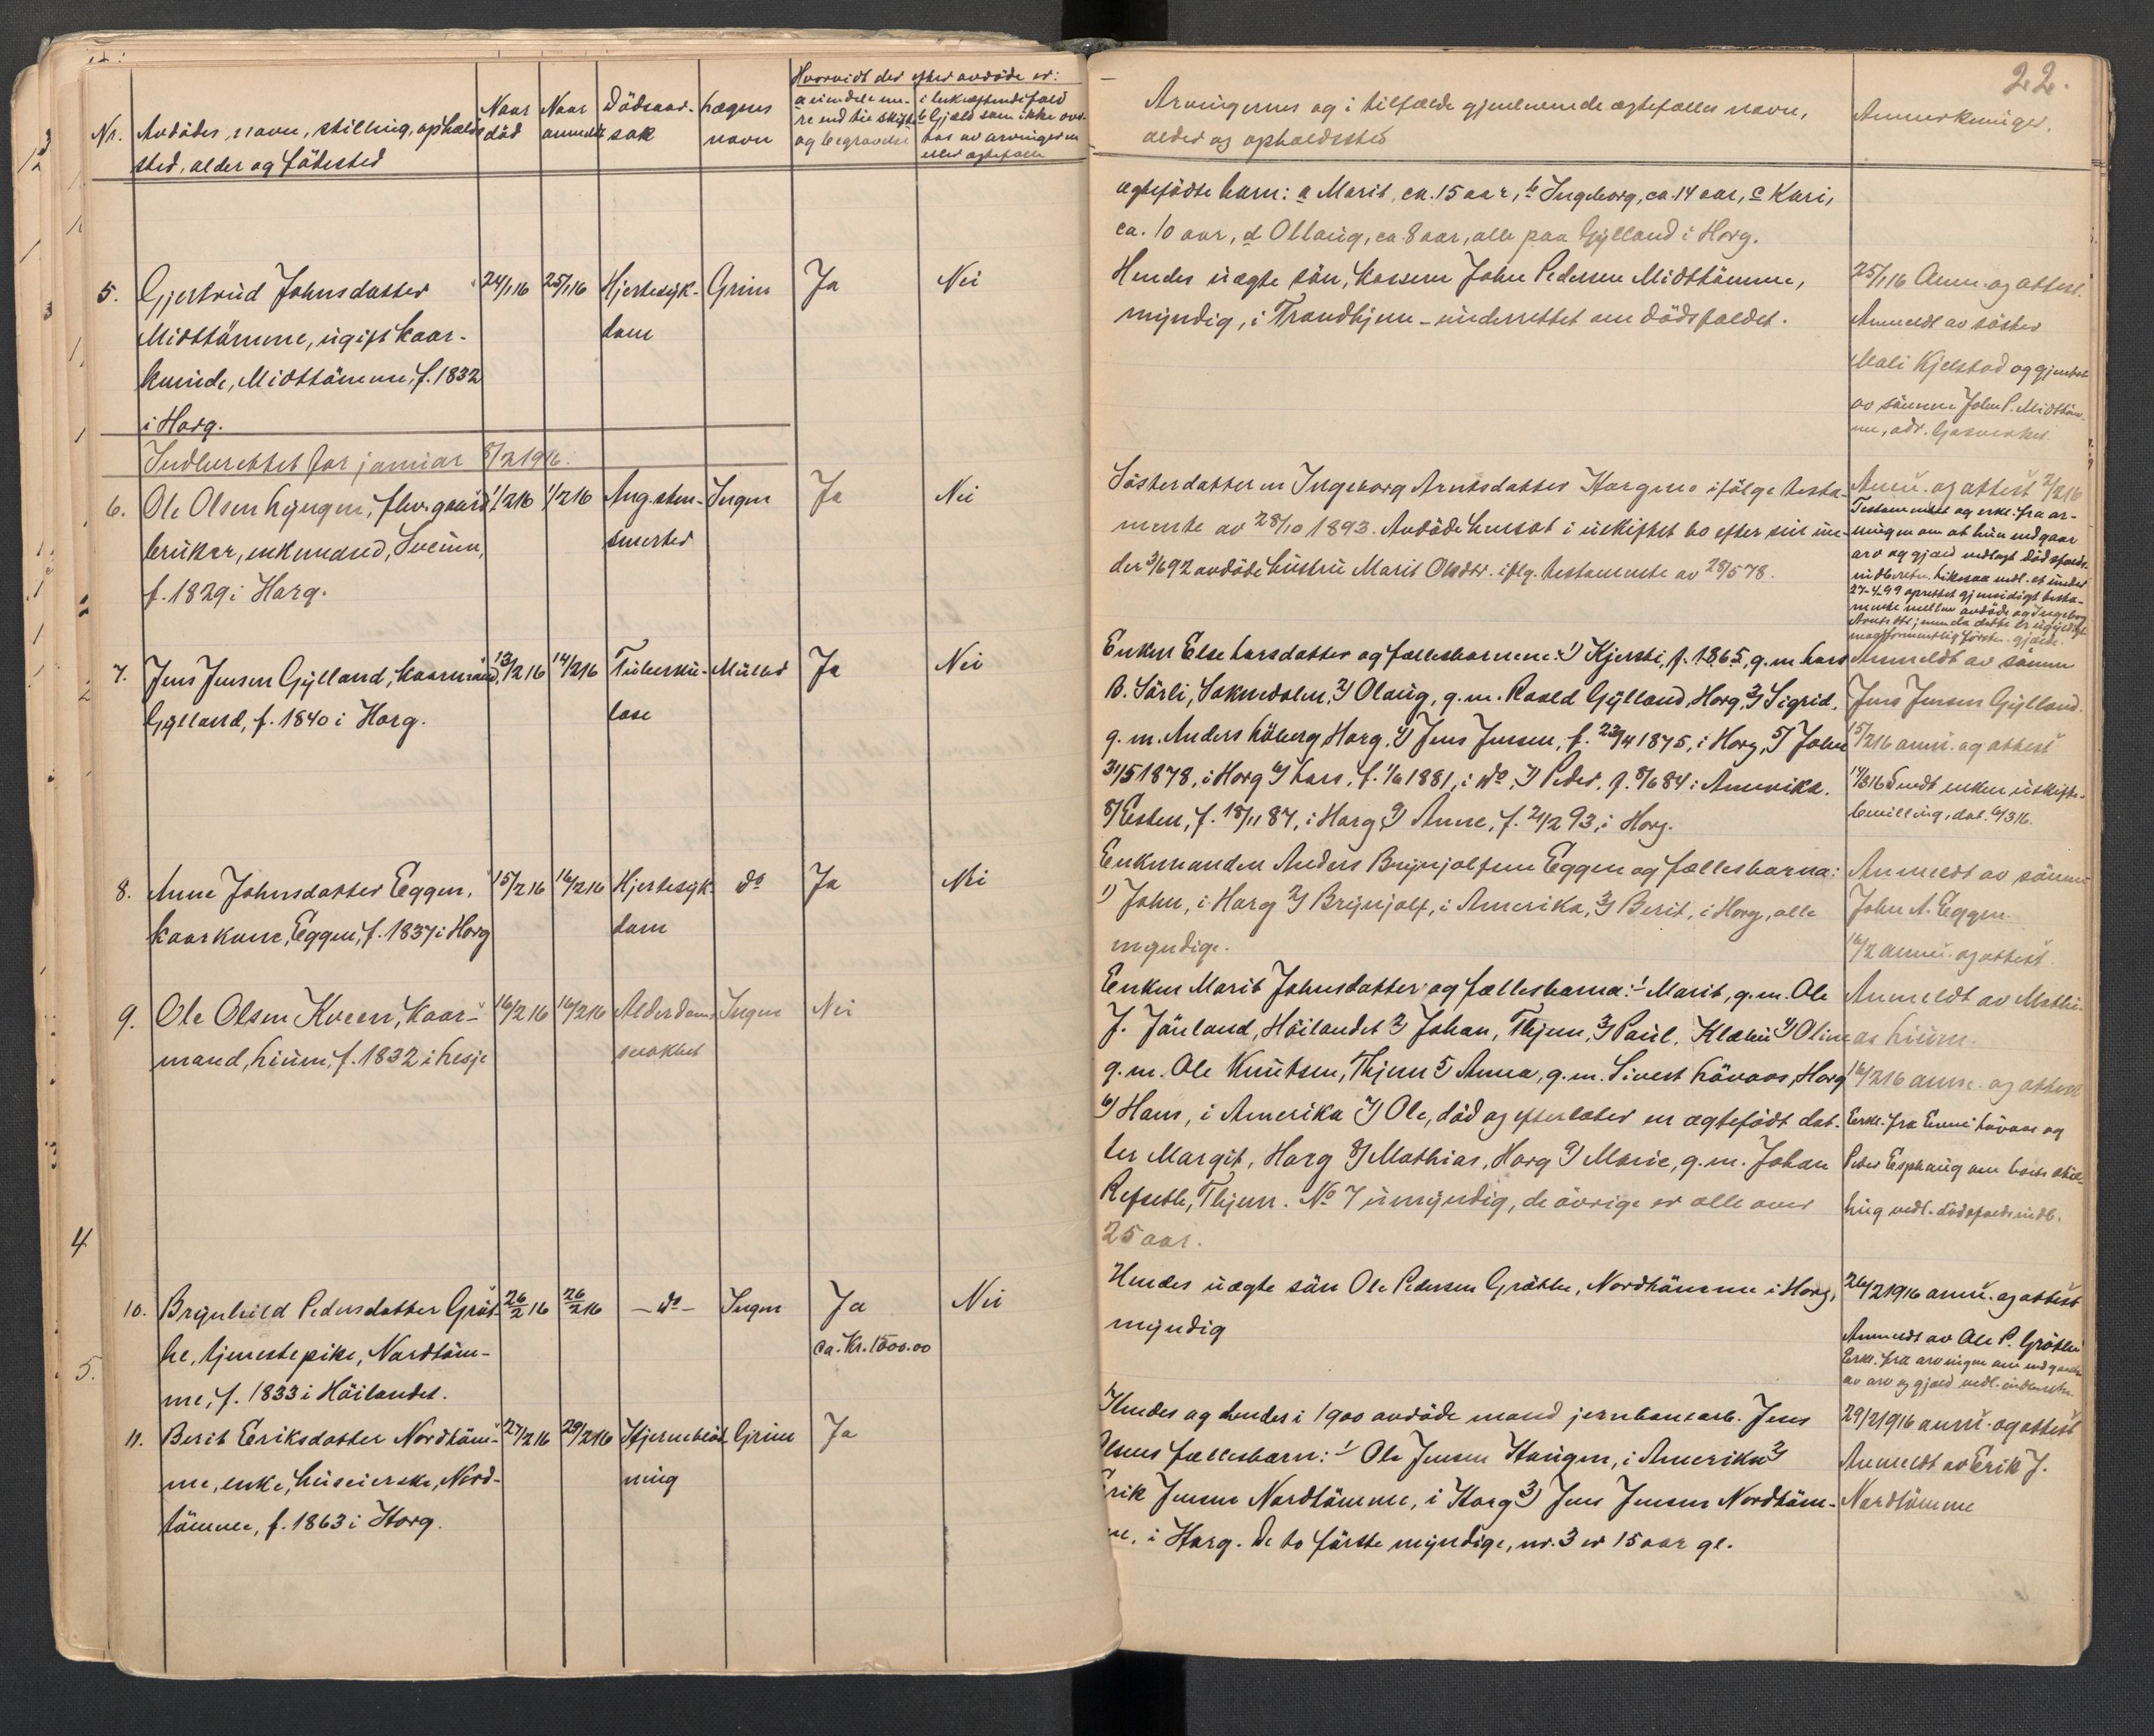 22.
Nr.
Avdödes navn, stilling, opholds
sted, alder og födested
Naar
död
Naar
anmeldt
Dödsaar-
sak
Lægens
navn
Hvorvidt der efter avdöde er:
a eiendele me-
re end til skifte
og begravelse
i bekræftende fald
b Gjæld som ikke over-
tas av arvingerne
eller ægtefælle
Arvingernes og i tilfælde gjenlevende ægtefælles navn,
alder og opholdssted
Anmerkninger.
ægtefödte barn: a Marit, ca. 15 aar, b Ingeborg, ca. 14 aar, c Kari,
ca. 10 aar, d Ollaug, ca. 8 aar, alle paa Gylland i Horg.
5. Gjertrud Johnsdatter
Midttömme, ugift kaar-
kvinde, Midttömme, f. 1832
i Horg.
24/1 16
25/1 16
Hjertesyk-
dom
Grim
Ja
Nei
Hendes uægte sön, kasserer John Pedersen Midttömme,
myndig, i Trondhjem - underrettet om dödsfaldet.
25/1 16 Ann. og attest.
Anmeldt av söster
Mali Kjelstad og gjentat
av sönnen John P. Midttöm-
me, adr. Gasverket.
Indberettet for januar 8/2 1916.
6. Ole Olsen Lyngen, flv. gaard-
bruker, enkemand, Sveinn,
f. 1829 i Horg.
1/2 16
1/2 16
Ang. sten-
smerter
Ingen
Ja
Nei
Sösterdatteren Ingeborg Arntsdatter Horgmo ifölge testa-
mente av 28/10 1893. Avdöde hensat i uskiftet bo efter sin un-
der 3/6 92 avdöde hustru Marit Olsdtr. iflg. testamente av 28/5 78.
Ann. og attest 2/2 16
Testamentet og erkl. fra ar-
vingen om at hun vedgaar
arv og gjæld vedlagt dödsfalds-
indberetn. Likesaa vedl. et under
27-4-99 oprettet gjensidigt testa-
mente mellem avdöde og Ingeborg
7. Jens Jensen Gylland, kaarmand,
Gylland, f. 1840 i Horg.
13/2 16
14/2 16
Tuberku-
lose
Müller
Ja
Nei
Enken Else Larsdatter og fællesbarnene: 1) Kjersti, f. 1865, g.m. Lars
B. Sörli, Soknedalen, 2) Olaug, g.m. Roald Gylland, Horg, 3) Sigrid,
g.m. Anders Höberg, Horg, 4) Jens Jensen, f. 23/4 1875, i Horg, 5) John
31/5 1878, i Horg 6) Lars, f. 1/6 1881, i do, 7) Peder, f. 8/6 84 i Amerika.
8) Esten, f. 18/11 87, i Horg 9) Anne, f. 21/2 93, i Horg.
Anmeldt av sönnen
Jens Jensen Gylland.
15/2 16 ann. og attest
14/3 16 Sendt enken uskifte-
bevilling, dat. 6/3 16.
8. Anne Johnsdatter Eggen,
kaarkone, Eggen, f. 1837 i Horg
15/2 16
16/2 16
Hjertesyk-
dom
do
Ja
Nei
Enkemanden Anders Brynjolfsen Eggen og fællesbarna:
1) John, i Horg 2) Brynjolf, i Amerika, 3) Berit, i Horg, alle
myndige.
Anmeldt av sönnen
John A. Eggen
16/2 ann. og attest.
9. Ole Olsen Kveen, kaar-
mand, Lium, f. 1832 i Lesje
16/2 16
16/2 16
Alderdoms-
svakhet
Ingen
Nei
Enken Marit Johnsdatter og fællesbarna: 1 Marit, g.m. Ole
J. Jönland, Höilandet 2) Johan, Thjem, 3) Paul, Klæbu 4) Oline
g.m. Ole Knutsen, Thjem 5) Anna, g.m. Sivert Lövaas, Horg
6) Hans, i Amerika 7) Ole, död og efterlater en ægtefödt dat-
ter Margit, Horg 8) Mathias, Horg 9) Marie, g.m. Johan
Refseth, Thjem. No 7 umyndig, de övrige er alle over
25 aar.
Anmeldt av Mathi-
as Lium.
16/2 16 ann. og attest
Erkl. fra Enni Lövaas og
Peder Esphaug om boets stil-
ling vedl. dödsfaldsindb.
10. Brynhild Pedersdatter Gröt-
he, tjenestepike, Nordtöm-
me, f. 1833 i Höilandet.
26/2 16
26/2 16
- do -
Ingen
Ja
ca. Kr. 1500.00
Nei
Hendes uægte sön Ole Pedersen Gröthe, Nordtömme i Horg,
myndig
26/2 1916 ann. og attest
Anmeldt av Ole P. Gröthe
Erkl. fra arvingen om vedgaaelse
av arv og gjæld vedl. indberetn.
11. Berit Eriksdatter Nordtöm-
me, enke, huseierske, Nord-
tömme, f. 1863 i Horg.
27/2 16
29/2 16
Hjerneblöd-
ning
Grim
Ja
Hendes og hendes i 1900 avdöde mand jernbanearb. Jens
Olsens fællesbarn: 1/ Ole Jensen Haugen, i Amerika 2)
Erik Jensen Nordtömme, i Horg 3) Jens Jensen Nordtöm-
me, i Horg. De to förste myndige, nr. 3 er 15 aar gl.
29/2 1916 ann. og attest
Anmeldt av Erik J.
Nordtömme
4
5.